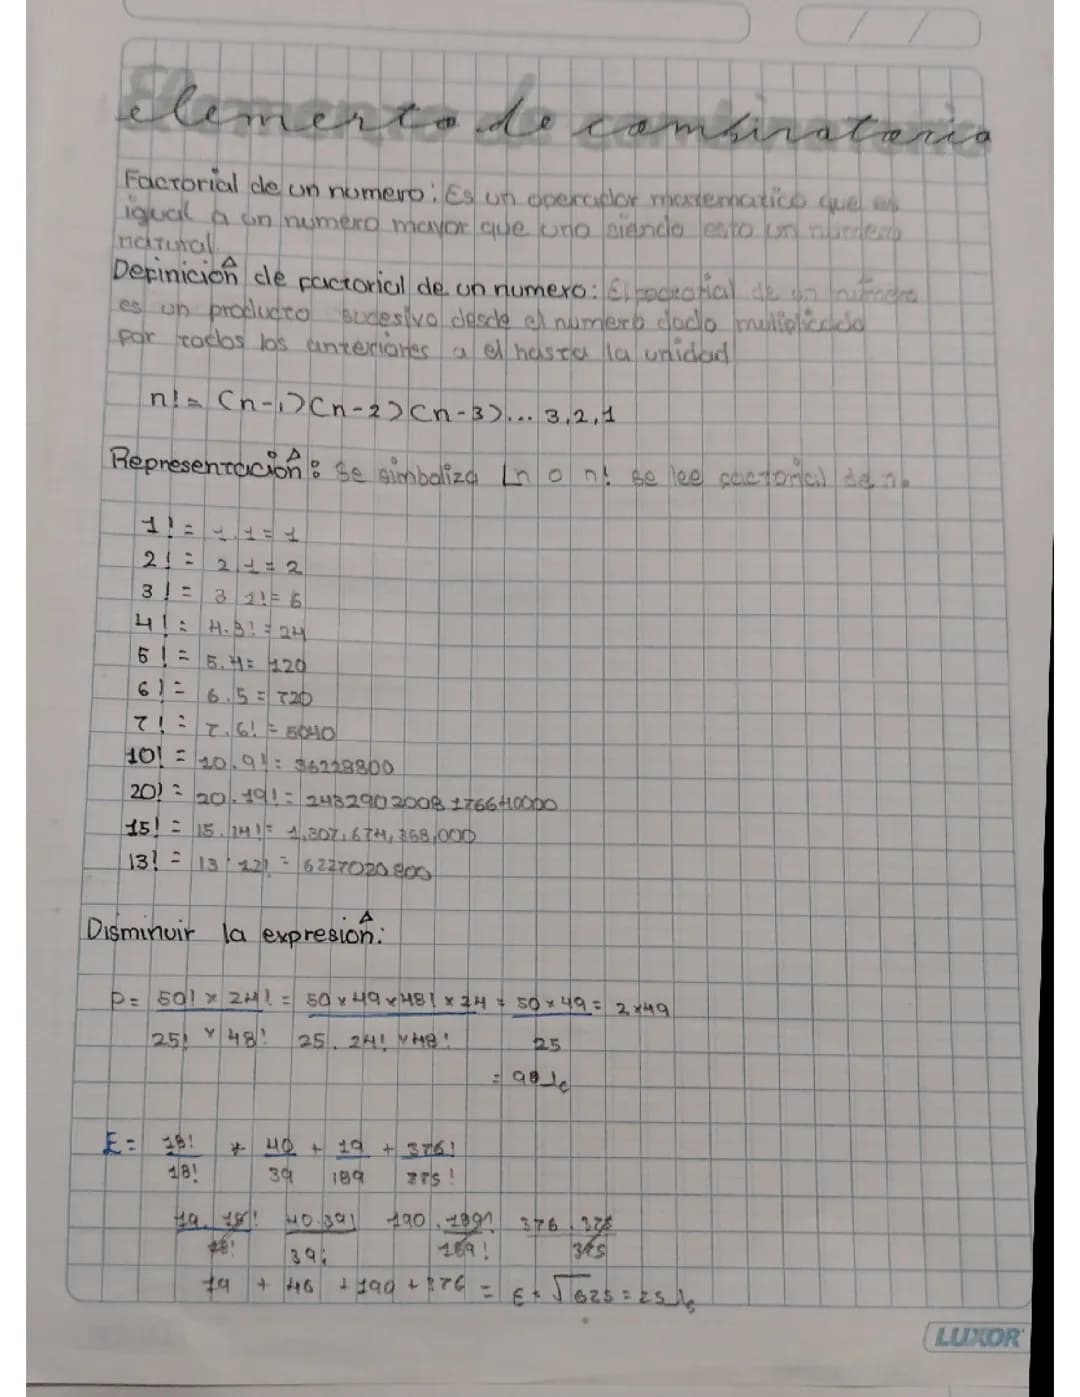 elemento de combinatoria
Factorial de un numero: Es un operador matematico que es
igual a un numero mayor que uno siendo esto un numero
natural.
Definición de factorial de un numero: El factorial de un numero
es un producto sucesivo desde el numero dado multiplicado
por todos los anteriores a el hasta la unidad
n! = (n-1)(n-2)(n-3)... 3,2,1
Representación: Se simboliza Ln o n! se lee factorial de n.
1! = 1.1 = 1
2! = 2 1 = 2
3! = 3 2! = 6
4! = 4.3! = 24
5! = 5.4 = 120
6! = 6.5 = 720
7! = 7.6! = 5040
10! = 10.9! = 36228800
20! = 20.19! = 2432902008176640000
15! = 15.14! = 1,307,674,368,000
13! = 13.12! = 6227020800
Disminuir la expresión:
P = 50! x 24! = 50 x 49 x 48! x 24 = 50 x 49 = 2 x 49
25! x 48! 25. 24! x 48! 25
= 98
E = 18! + 40 + 19 + 376!
18! 39 189
19. 18! 40.39! 190.189! 376.375
18! 39! 189! 375
19 + 40 + 190 + 376 = E + √625 = 25
LUXOR